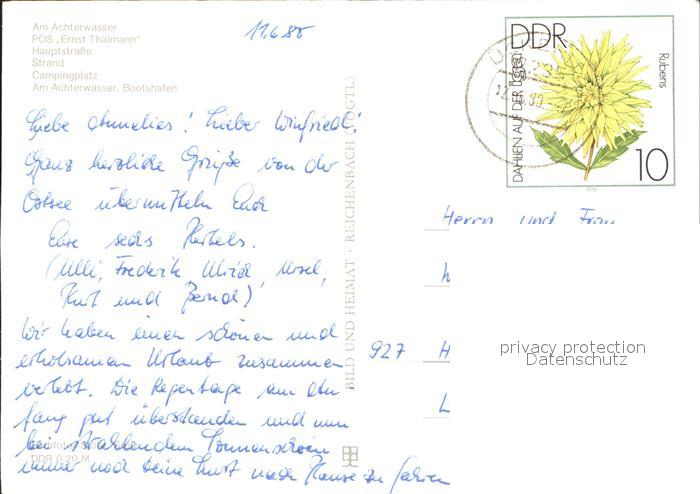 Am Achterwasser
POS „Ernst Thälmann"
Hauptstraße
Strand
Campingplatz
Am Achterwasser, Bootshafen
11.6.80
DDR
DAHLIEN AUF DER
Rubens
10
1979
Liebe Annelies! Lieber Winfried!
Ganz herzliche Grüße von der
Ostsee übermitteln Euch
Eure sechs
(Ulli, Frederik, Ursel,
Kurt und Bernd)
Wir haben einen schönen und
erholsamen Urlaub zusammen
verlebt. Die Regentage am An
fang gut überstanden und nun
bei strahlendem Sonnenschein
immer noch keine Lust nach Hause zu fahren
DDR 0,20 M
BILD UND HEIMAT · REICHENBACH (VOGTL)
Herrn und Frau
927 H
L
privacy protection
Datenschutz